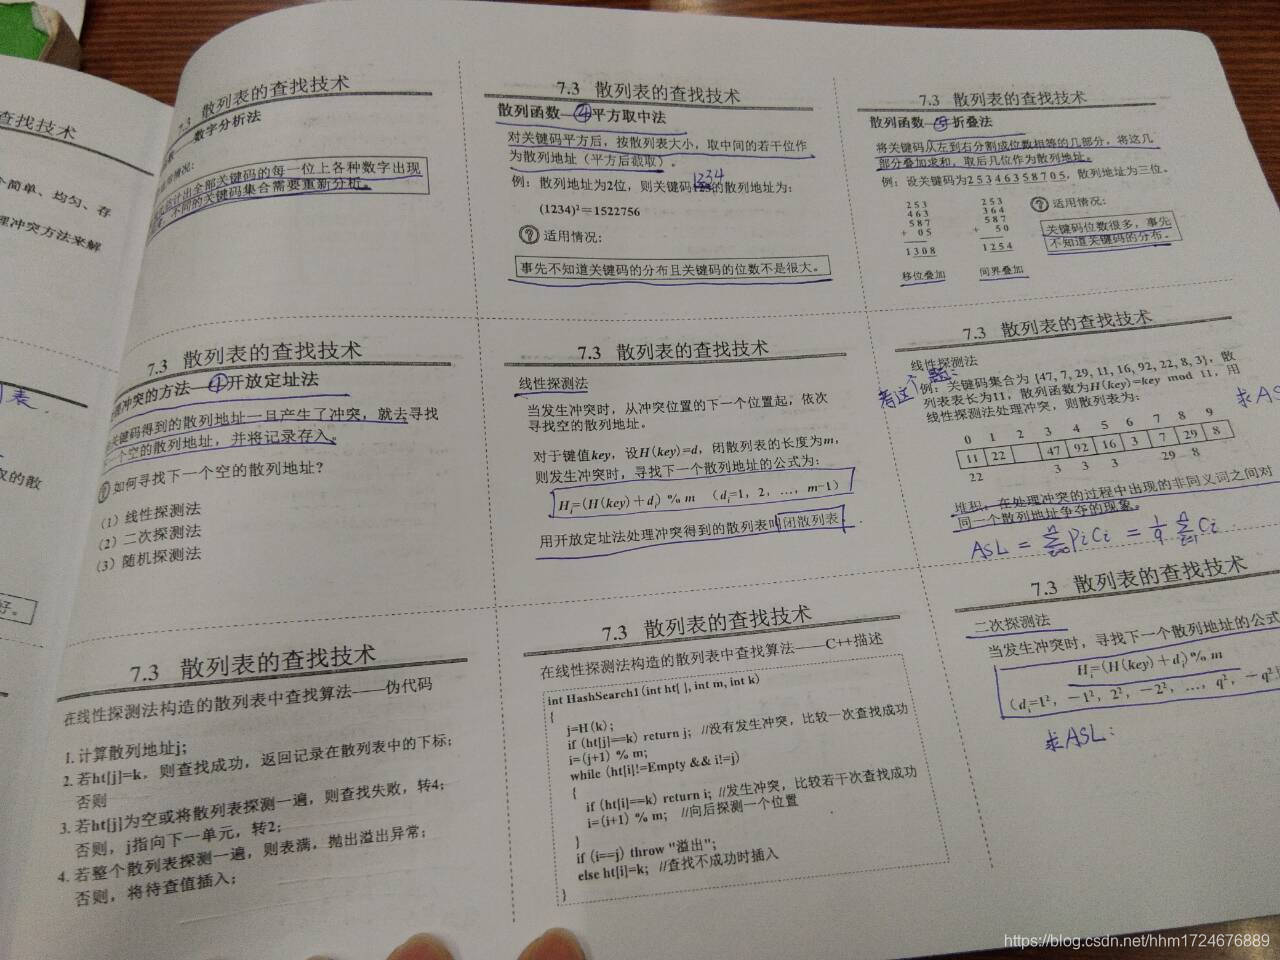 查找技术
个简单、均匀、存
理冲突方法来解
列表
取的散
好。
7.3 散列表的查找技术
数字分析法
情况:
计出全部关键码的每一位上各种数字出现
不同的关键码集合需要重新分析。
7.3 散列表的查找技术
散列函数——④平方取中法
对关键码平方后，按散列表大小，取中间的若干位作
为散列地址（平方后截取）。
例：散列地址为2位，则关键码1234的散列地址为：
(1234)²=1522756
? 适用情况：
事先不知道关键码的分布且关键码的位数不是很大。
7.3 散列表的查找技术
散列函数——⑤折叠法
将关键码从左到右分割成位数相等的几部分，将这几
部分叠加求和，取后几位作为散列地址。
例：设关键码为2 5 3 4 6 3 5 8 7 0 5，散列地址为三位。
2 5 3 2 5 3 ? 适用情况：
4 6 3 3 6 4
5 8 7 5 8 7 关键码位数很多，事先
+ 0 5 + 5 0 不知道关键码的分布。
1 3 0 8 1 2 5 4
移位叠加 间界叠加
7.3 散列表的查找技术
理冲突的方法——①开放定址法
关键码得到的散列地址一旦产生了冲突，就去寻找
下一个空的散列地址，并将记录存入。
? 如何寻找下一个空的散列地址？
（1）线性探测法
（2）二次探测法
（3）随机探测法
7.3 散列表的查找技术
线性探测法
当发生冲突时，从冲突位置的下一个位置起，依次
寻找空的散列地址。
对于键值key，设H(key)=d，闭散列表的长度为m，
则发生冲突时，寻找下一个散列地址的公式为：
Hi=(H(key)+di) % m （di=1，2，…，m-1）
用开放定址法处理冲突得到的散列表叫闭散列表。
7.3 散列表的查找技术
线性探测法
看这个题：
例：关键码集合为 {47, 7, 29, 11, 16, 92, 22, 8, 3}，散
列表表长为11，散列函数为H(key)=key mod 11，用
线性探测法处理冲突，则散列表为：
求AS
0 1 2 3 4 5 6 7 8 9
11 22 47 92 16 3 7 29 8
22 3 3 3 29 8
堆积：在处理冲突的过程中出现的非同义词之间对
同一个散列地址争夺的现象。
ASL = Σ PiCi = 1/9 Σ Ci
7.3 散列表的查找技术
在线性探测法构造的散列表中查找算法——伪代码
1. 计算散列地址j；
2. 若ht[j]=k，则查找成功，返回记录在散列表中的下标；
否则
3. 若ht[j]为空或将散列表探测一遍，则查找失败，转4；
否则，j指向下一单元，转2；
4. 若整个散列表探测一遍，则表满，抛出溢出异常；
否则，将待查值插入；
7.3 散列表的查找技术
在线性探测法构造的散列表中查找算法——C++描述
int HashSearch1(int ht[ ], int m, int k)
{
j=H(k);
if (ht[j]==k) return j; //没有发生冲突，比较一次查找成功
i=(j+1) % m;
while (ht[i]!=Empty && i!=j)
{
if (ht[i]==k) return i; //发生冲突，比较若干次查找成功
i=(i+1) % m; //向后探测一个位置
}
if (i==j) throw "溢出";
else ht[i]=k; //查找不成功时插入
}
7.3 散列表的查找技术
二次探测法
当发生冲突时，寻找下一个散列地址的公式
Hi=(H(key)+di) % m
（di=1²，-1²，2²，-2²，…，q²，-q²
求ASL：
https://blog.csdn.net/hhm1724676889